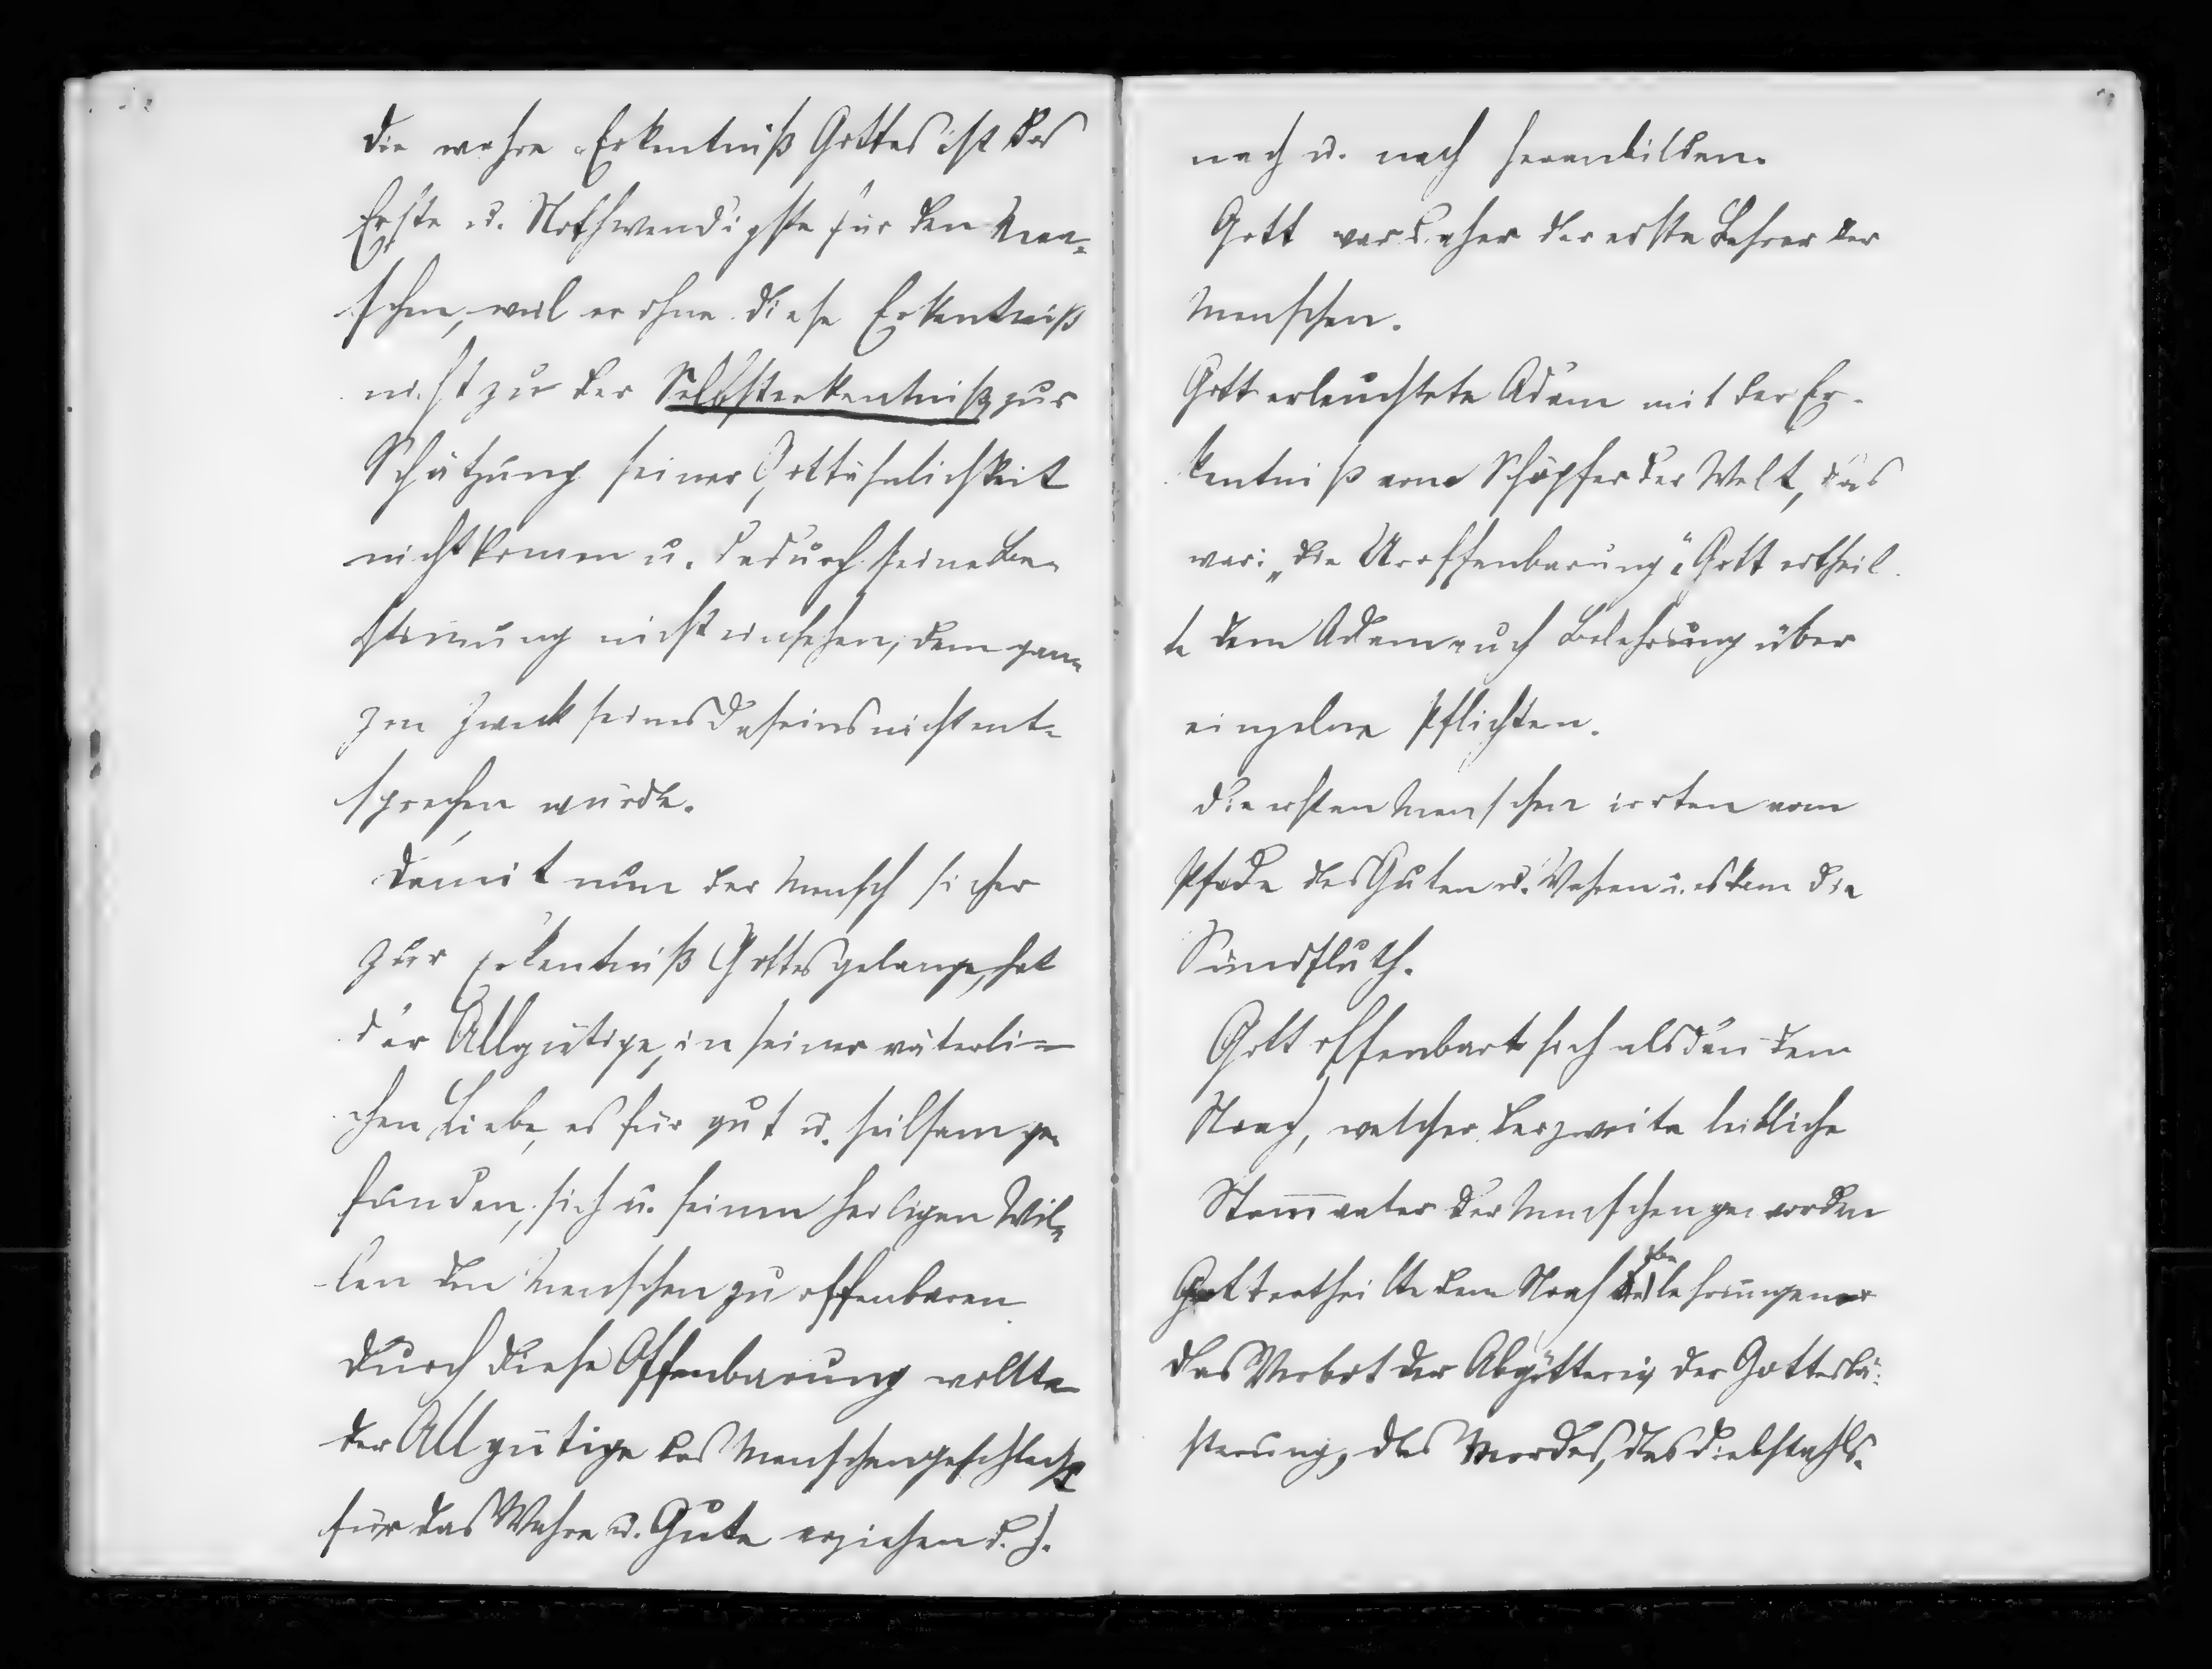 die wahre Erkentniß Gottes ist das
Erste u. Nothwendigste für den Men-
schen, weil er ohne diese Erkentniß
nicht zu der Selbsterkentniß, zur
Schätzung seiner Gottähnlichkeit
nicht kommen u. dadurch seine Be-
stimung nicht einsehen, dem gan-
zen Zweck seines Daseins nicht ent-
sprechen würde.
damit nun der Mensch sicher
zur Erkentniß Gottes gelange, hat
der Allgütige, in seiner väterli-
chen Liebe, es für gut u. heilsam ge-
funden, sich u. seinen heiligen Wil-
len den Menschen zu offenbaren
durch diese Offenbarung wollte
der Allgütige das Menschengeschlecht
für das Wahre u. Gute erziehen d. h.
nach u. nach heranbilden.
Gott war daher der erste Lehrer der
Menschen.
Gott erleuchtete Adam mit der Er-
kentniß vom Schöpfer der Welt, das
war: „die Uroffenbarung“. Gott ertheil-
te dem Adam auch Belehrung über
einzelne Pflichten.
die ersten Menschen irrten vom
Pfade des Guten u. Wahren u. es kam die
Sündfluth.
Gott offenbarte sich alsdan dem
Noah, welcher der zweite leibliche
Stammvater der Menschen geworden
Gott ertheilte dem Noah Belehrungen
das Verbot der Abgötterei, der Gottesläs-
sterung, des Mordes, des Diebstahls.